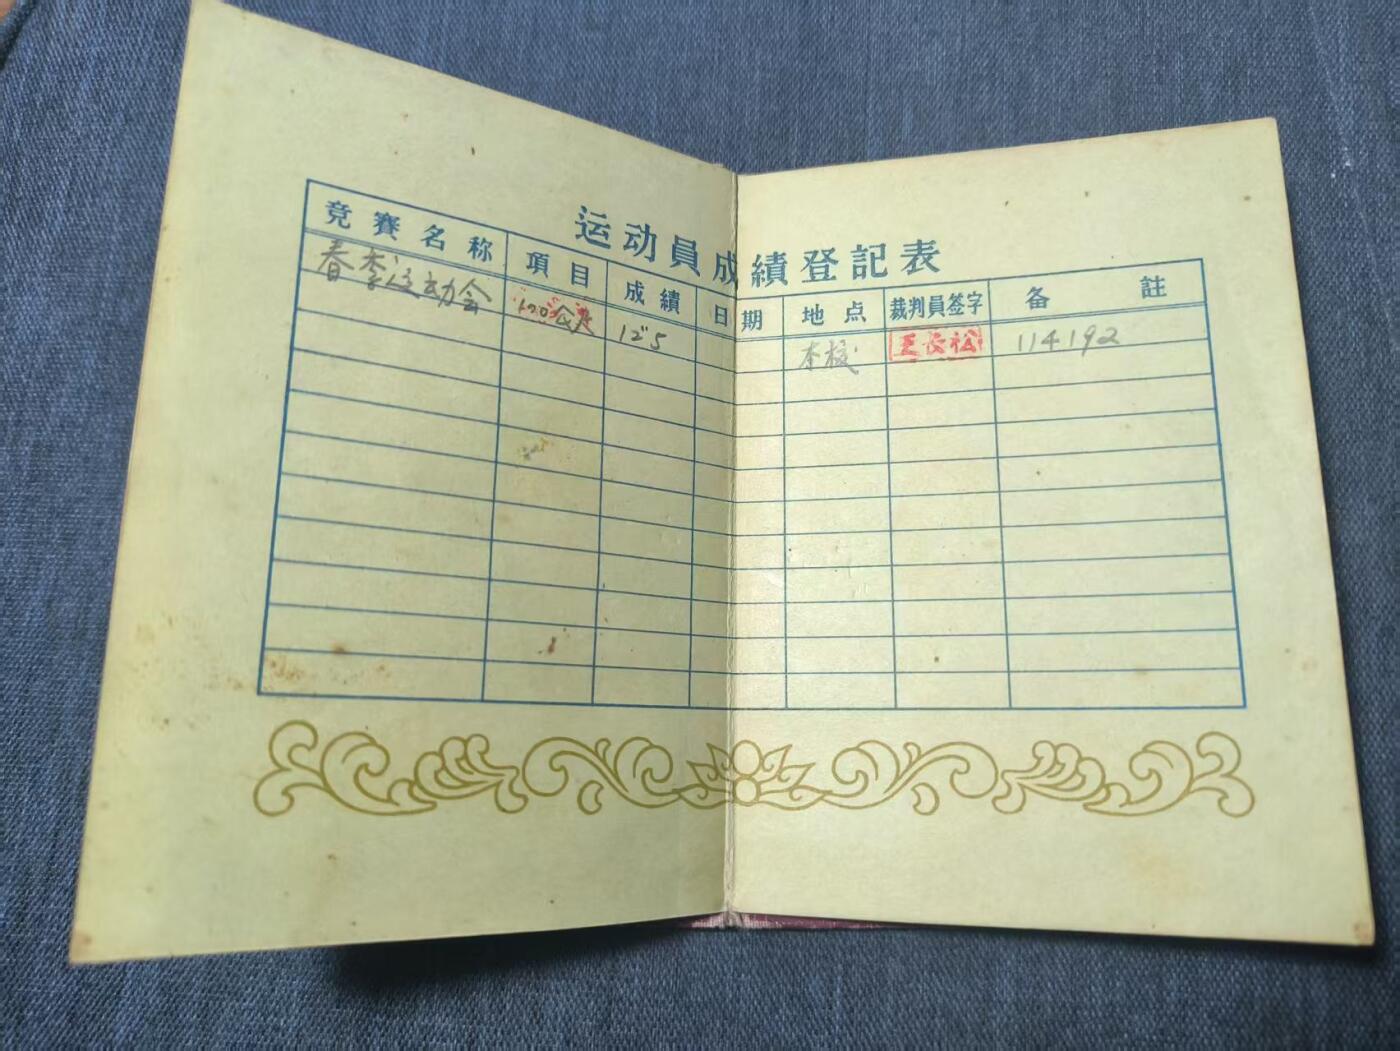 运动員成績登記表
竞賽名称 項目 成績 日期 地点 裁判員签字 备註
春季运动会 100公尺 12"5 本校 王长松 114192